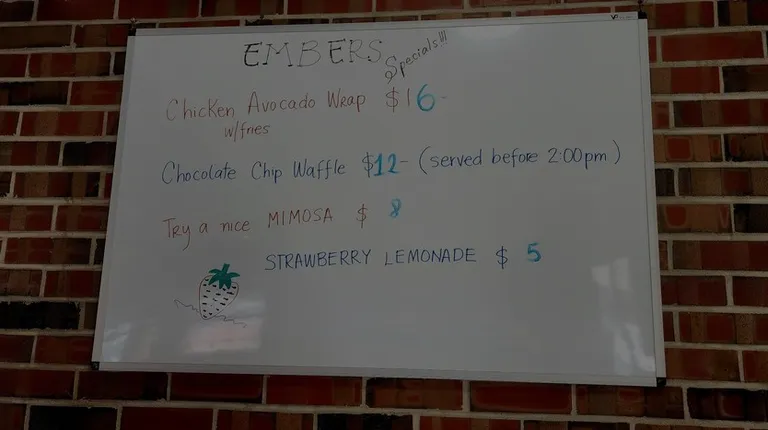 EMBERS Specials!!!
Chicken Avocado Wrap $16-
w/fries
Chocolate Chip Waffle $12- (served before 2:00pm)
Try a nice MIMOSA $ 8
STRAWBERRY LEMONADE $ 5